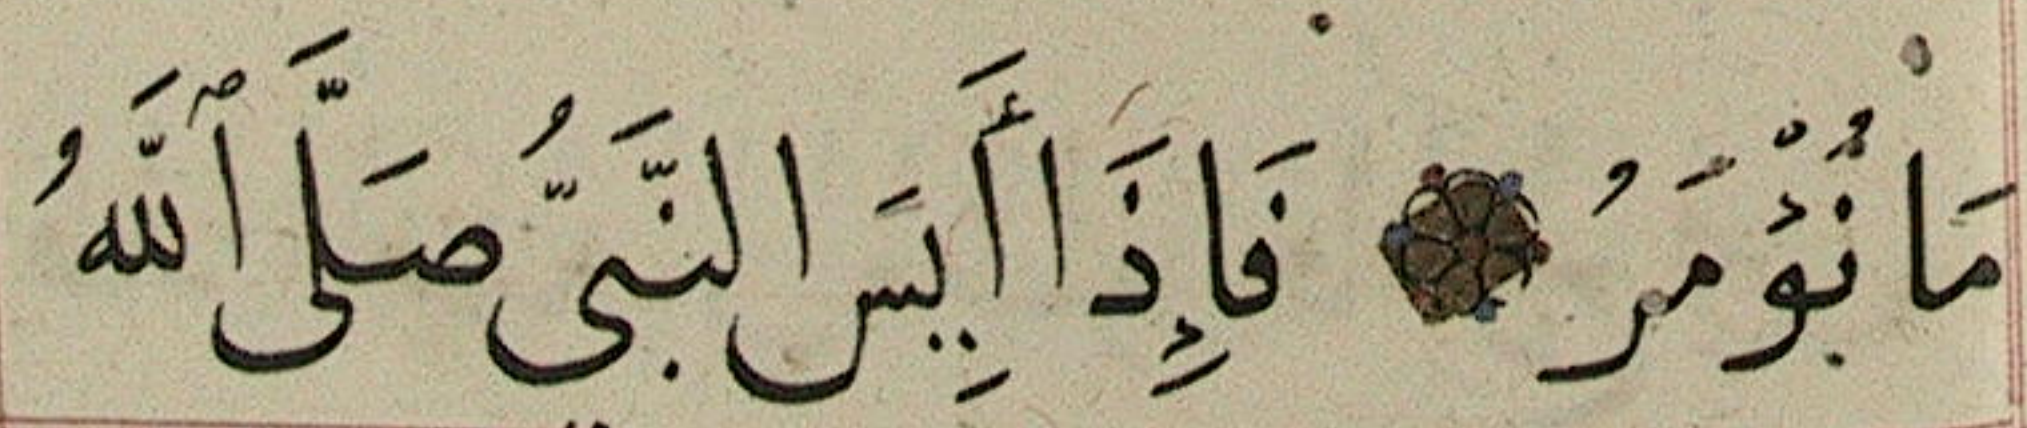 مَا نُؤْمَرُ فَاِذَا أَيِسَ النَّبِيُّ صَلَّى ٱللَّهُ